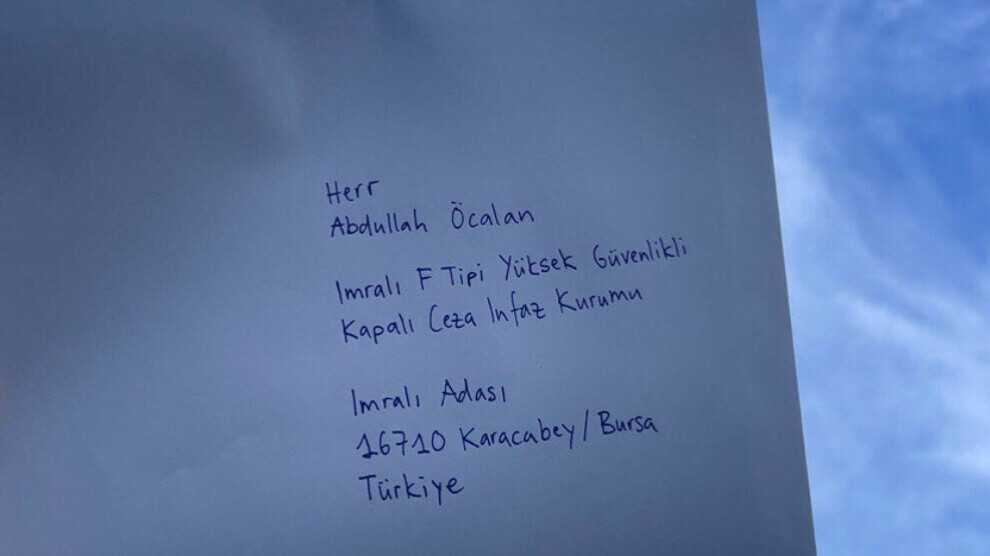 Herr
Abdullah Öcalan
Imralı F Tipi Yüksek Güvenlikli
Kapalı Ceza Infaz Kurumu
Imralı Adası
16710 Karacabey/Bursa
Türkiye